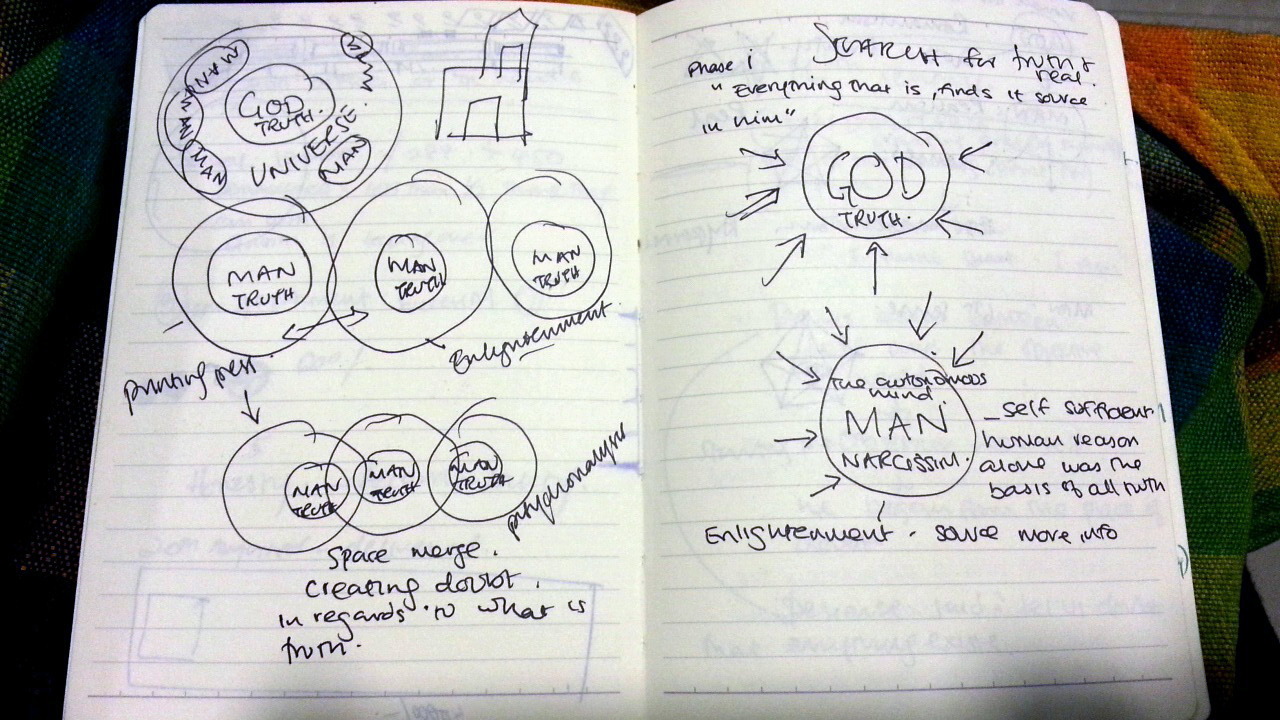 MAN
MAN
GOD
TRUTH.
UNIVERSE
MAN
MAN
MAN
TRUTH
MAN
TRUTH
MAN
TRUTH
Printing press.
Enlightenment
MAN
TRUTH
MAN
TRUTH
MAN
TRUTH
psychoanalysis
Space merge.
creating doubt.
in regards to what is
truth.
SEARCH for truth +
real.
Phase i
"Everything that is, finds it source
in him"
GOD
TRUTH.
The autonomous
mind.
MAN
NARCISSISM.
_ self sufficient
human reason
alone was the
basis of all truth
Enlightenment. source more info